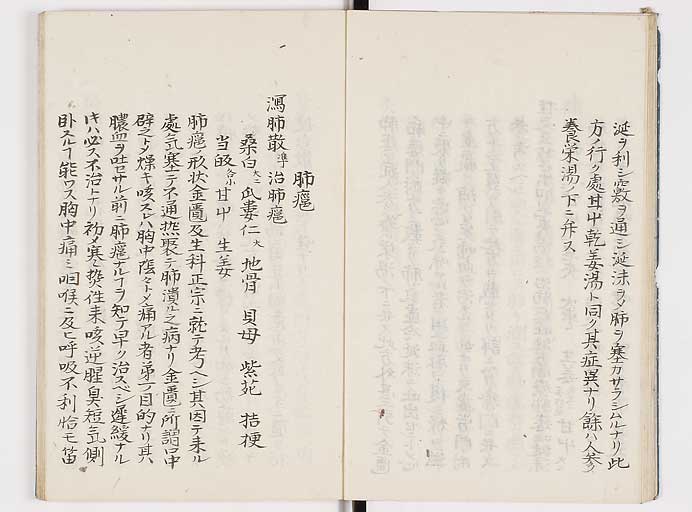 涎ヲ利シ竅ヲ通シ涎沫ヲメ肺ヲ塞カサラシムルナリ此
方ノ行ク處甘艸乾姜湯ト同ク其症異ナリ餘ハ人参
養栄湯ノ下ニ弁ス
肺癰
瀉肺散 準 治肺癰
桑白 大二 瓜蔞仁 大 地骨 貝母 紫苑 桔梗
当皈 各小 甘艸 生姜
肺癰ノ形状金匱及生科正宗ニ就テ考ヘシ其因テ来ル
處気塞テ不通熱聚テ肺潰ル之病ナリ金匱ニ所謂口中
辟之トノ燥キ咳スレハ胸中隠々トメ痛アル者第一ノ目的ナリ其
膿血ヲ吐セサル前ニ肺癰ナルヿヲ知テ早ク治スベシ遅緩ナル
キハ必ス不治トナリ初メ寒熱往来咳逆腥臭短気側
臥スルヿ能ワス胸中痛ミ咽喉ニ及ヒ呼吸不利恰モ笛